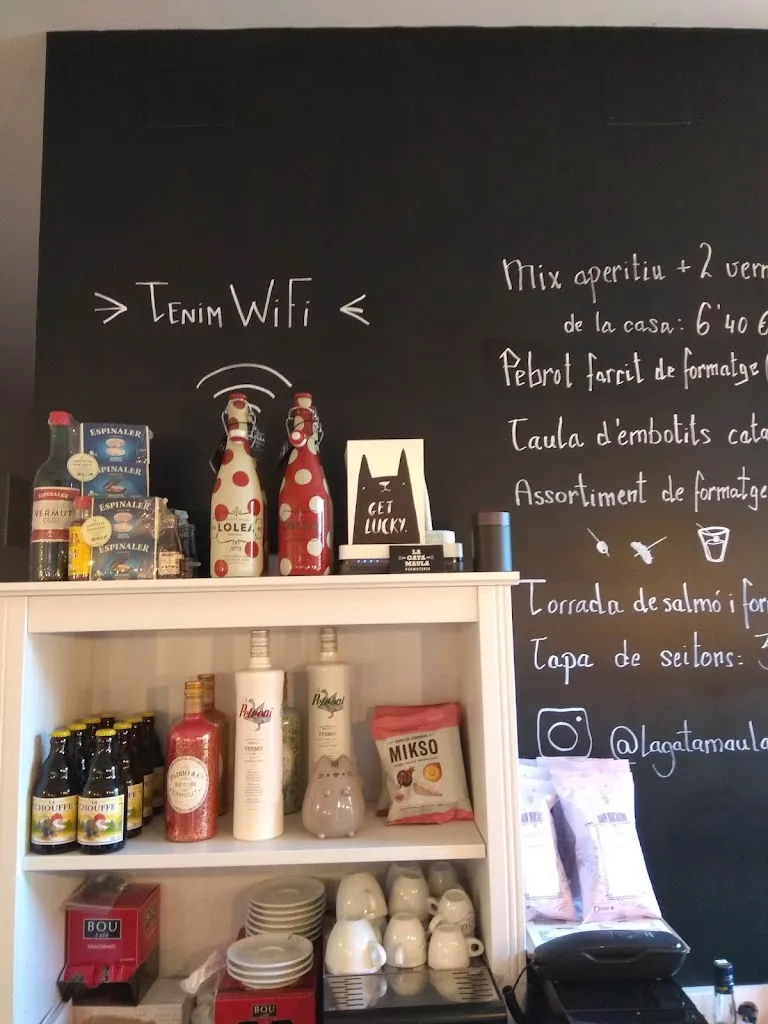 > TENIM WiFi <
Mix aperitiu + 2 verm
de la casa: 6'40 €
Pebrot farcit de formatge (
Taula d'embotits cata
Assortiment de formatge
Torrada de salmó i for
Tapa de seitons: 3
@lagatamaula
ESPINALER
ESPINALER
ESPINALER
ESPINALER
ESPINALER
VERMUT
LOLEA
Nº2
GET
LUCKY.
LA
GATA
MAULA
VERMUTERIA
Petroni
VERMO
Petroni
VERMO
MIKSO
LA
CHOUFFE
LA
CHOUFFE
& CO
VERMOUTH
BOU
Café
BOU